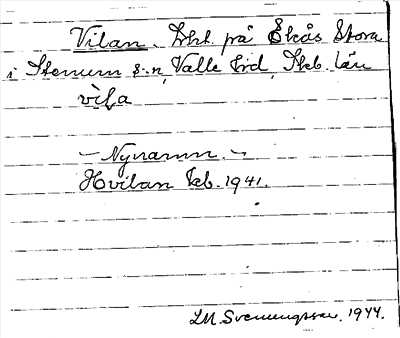 Vilan. Trkt. på Ekås Stora
i Stenum s:n, Valle hrd, Skb. län
vìla
— Nynamn. —
Hvilan Jeb. 1941.
L.M. Svenungsson. 1944.